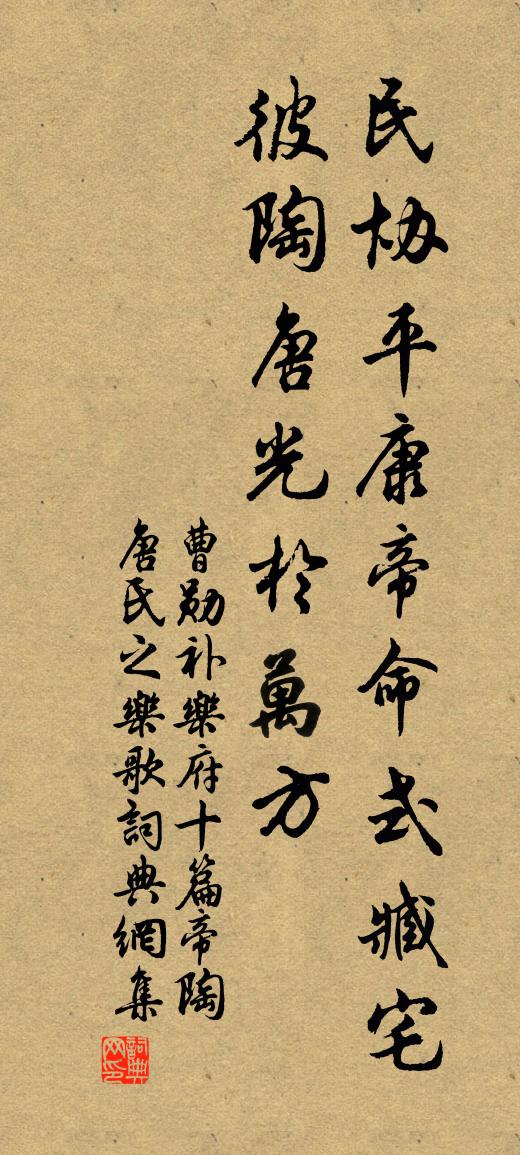 民协平康帝命式臧宅
彼陶唐光於萬方
曹勋补樂府十篇帝陶
唐氏之樂歌詞典網集
詞典
网印